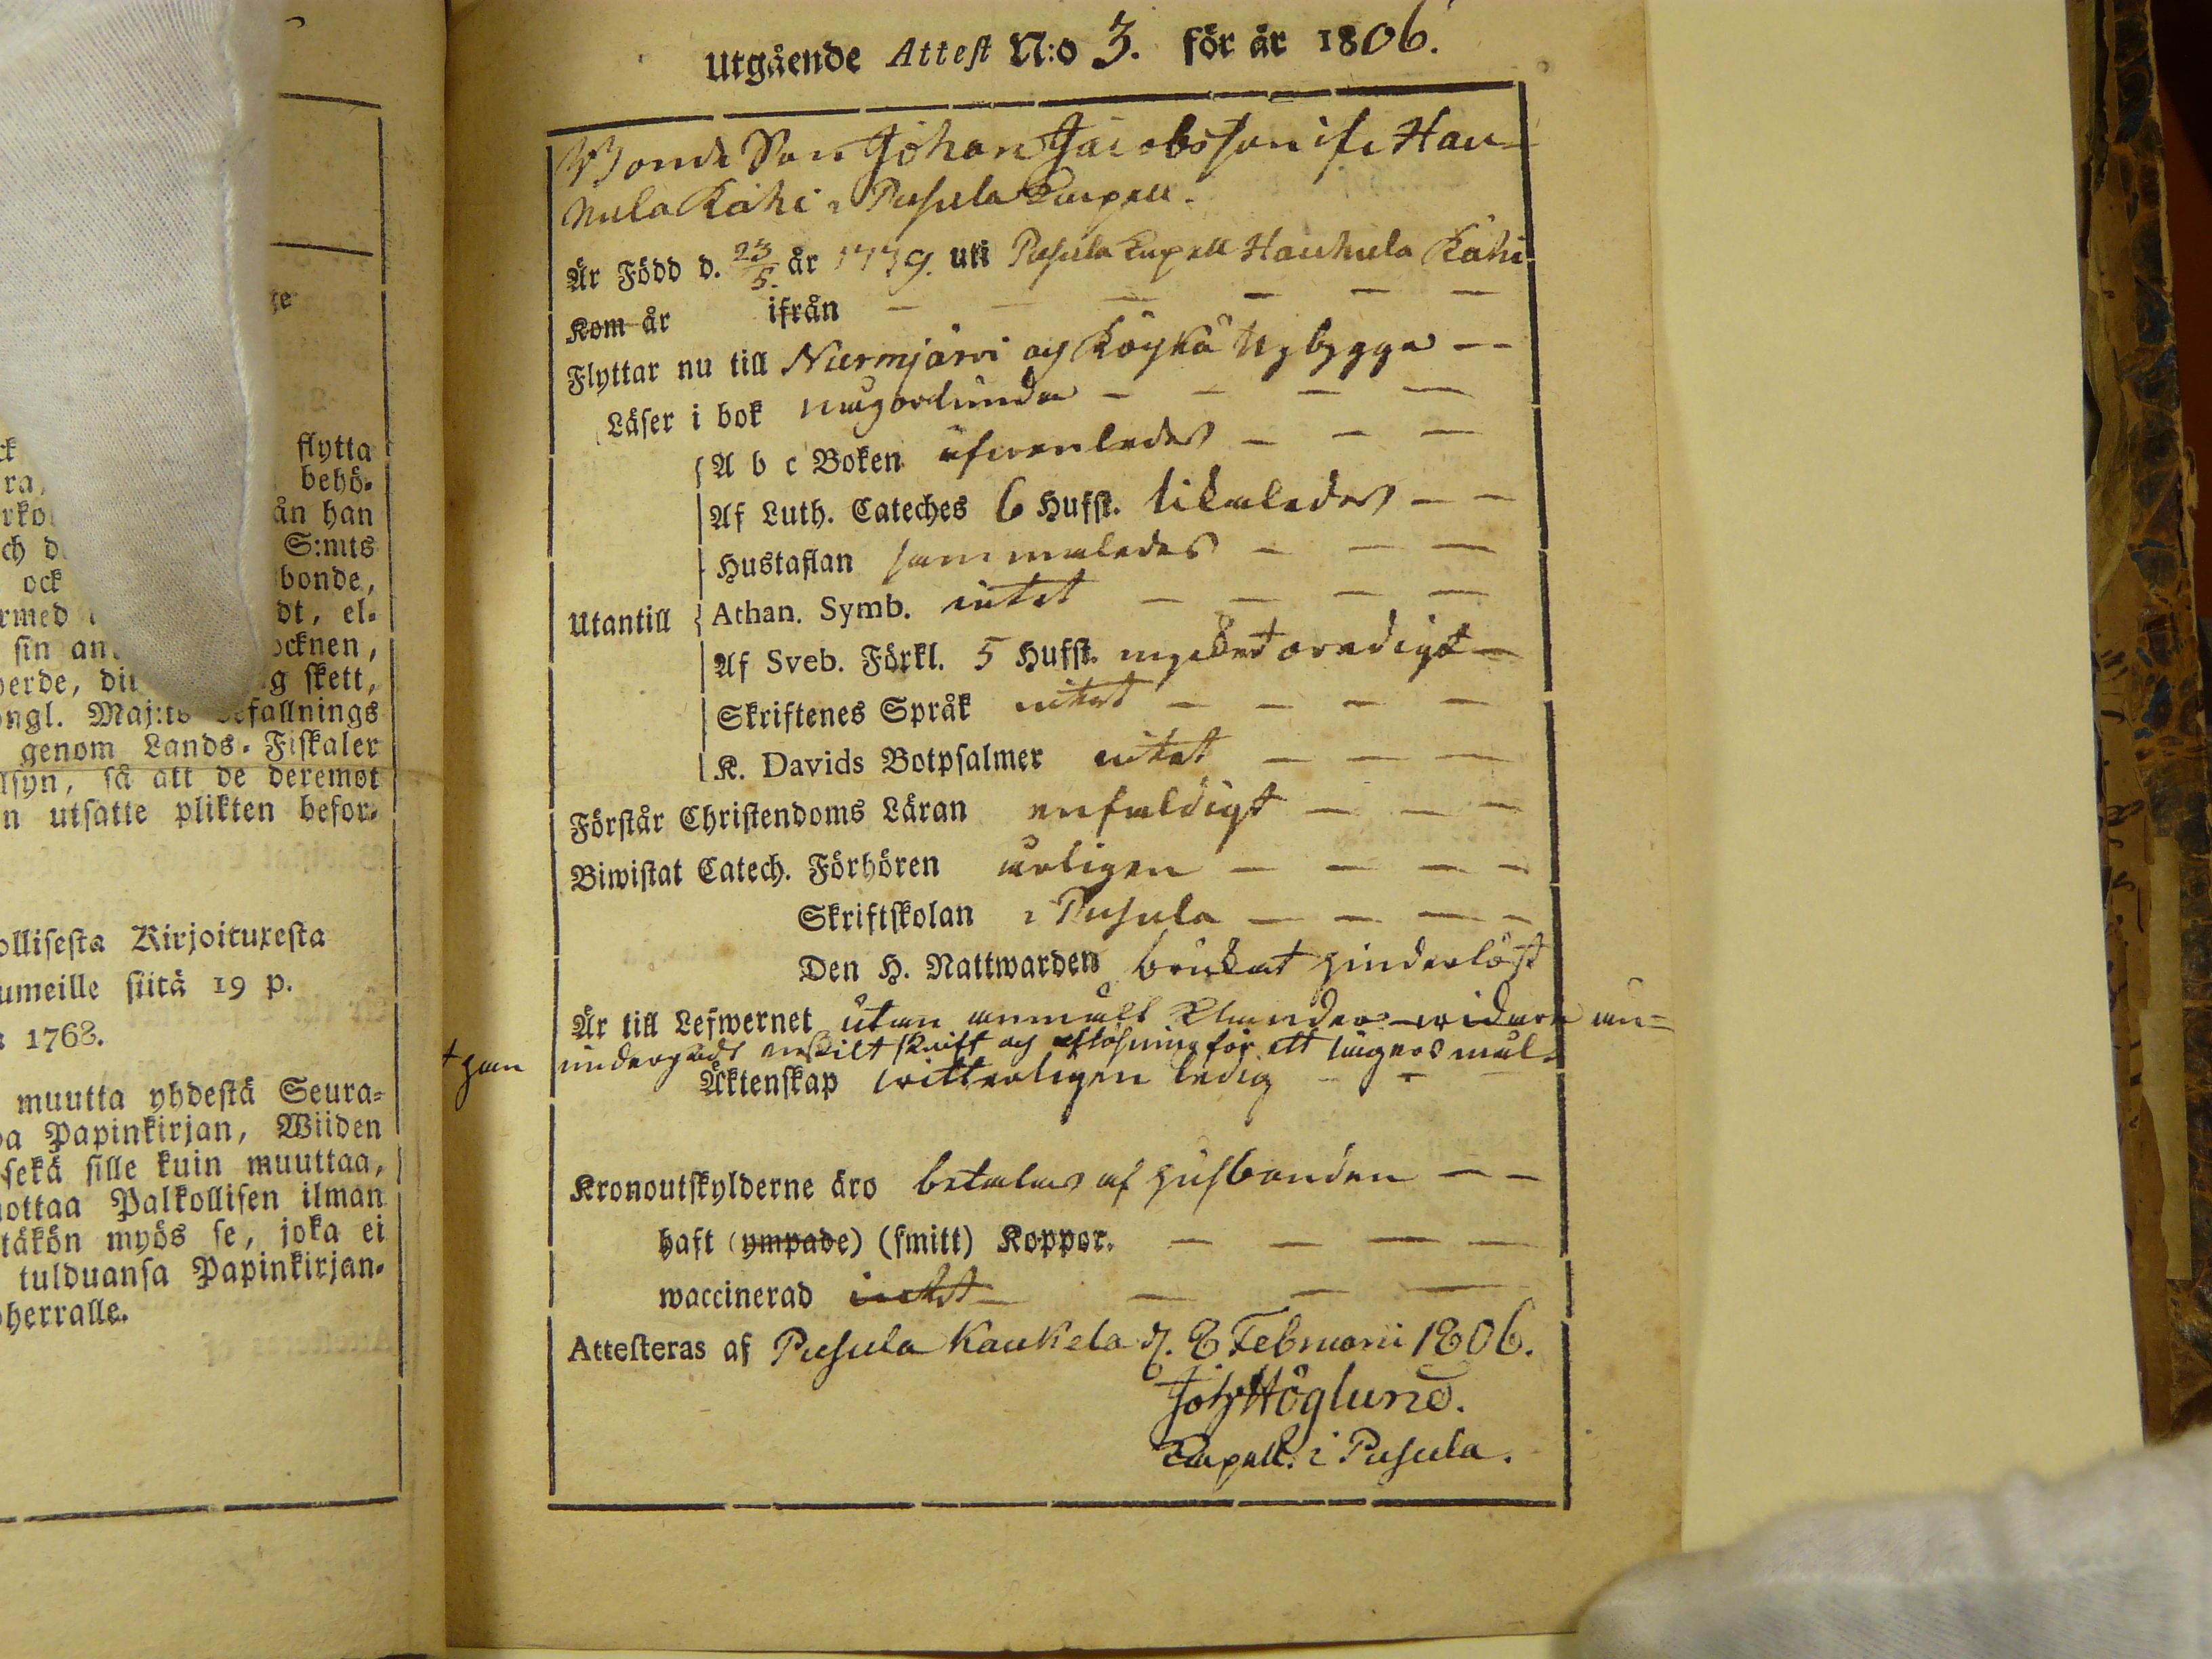 ge
flytta
ra, behö-
ån han
ch d S:mts
ock bonde,
rmed dt, el-
sin an ocknen,
verde, dit g skett,
ongl. Maj:ts Befallnings
genom Lands-Fiskaler
lsyn, så att de deremot
n utsatte plikten befor-
ollisesta Kirjoituxesta
umeille siitä 19 p.
1768.
muutta yhdestä Seura-
pa Papinkirjan, Wiiden
sekä sille kuin muuttaa,
uottaa Palkollisen ilman
täkön myös se, joka ei
tulduansa Papinkirjan-
oherralle.
Utgående Attest N:o 3. för år 1806.
Bonde Son Johan Jacobsson ifr Hau-
hula Kähi i Pusula Capell.
Är Född d. 23/5. år 1779. uti Pusula Capell Hauhula Kähi
Kom år ifrån — — — — — —
Flyttar nu till Nurmjärvi och Röykä Nybygge — —
Läser i bok någorlunda — — — —
A b c Boken äfvenledes — — —
Af Luth. Cateches 6 Hufst. likaledes — —
Hustaflan sammaledes — — —
Utantill Athan. Symb. intet — — — —
Af Sveb. Förkl. 5 Hufst. mycket oredigt —
Skriftenes Språk intet — — — —
K. Davids Botpsalmer intet — — —
Förstår Christendoms Läran enfaldigt — — —
Biwistat Catech. Förhören årligen — — — —
Skriftskolan i Pusula — — — —
Den H. Nattwarden brukat hinderlöst
Är till Lefwernet utan anmält klander widare än=
+ han undergådt enskilt skrift och aflösning för ett lägersmål.
Äktenskap witterligen ledig — — —
Kronoutskylderne äro betalas af husbonden — —
haft (ympade) (smitt) Koppor. — — — —
waccinerad intet — — — —
Attesteras af Pusula Kaukela d. 8 Februarii 1806.
Joh Höglund.
Capell. i Pusula.